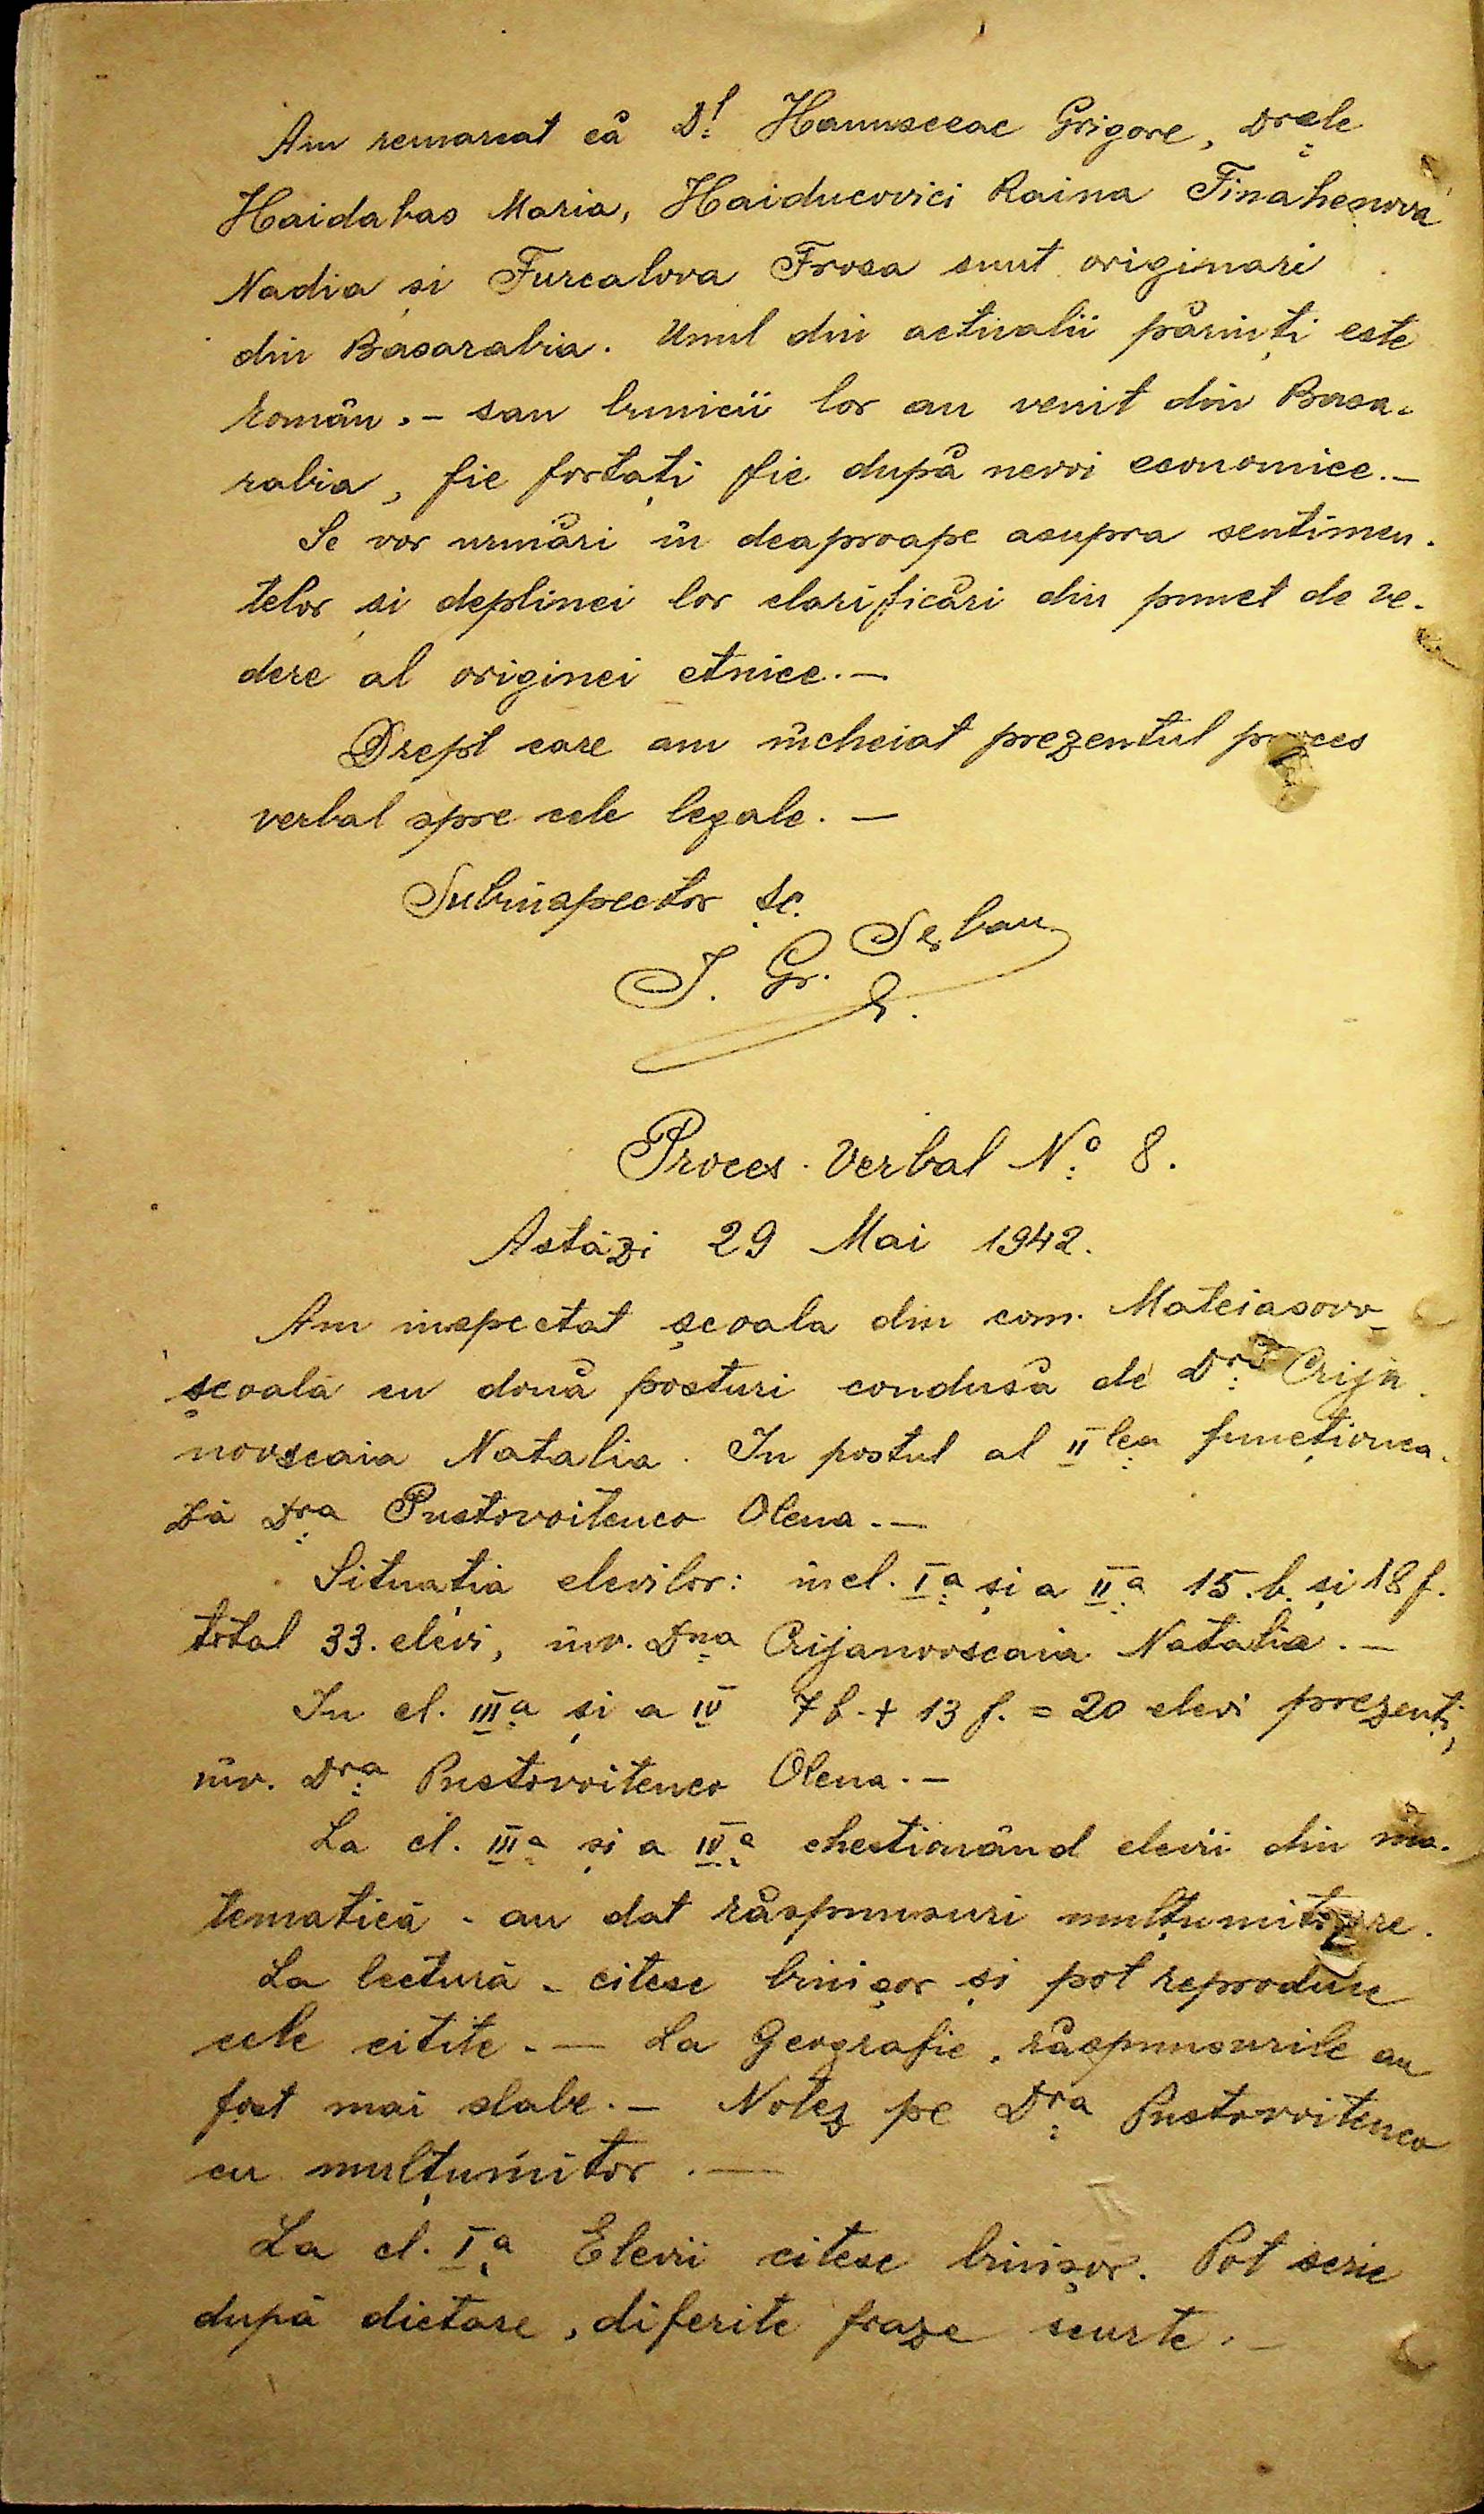 Am remarcat că Dl Hanusceac Grigore, Drele
Haidabas Maria, Haiducovici Raina Tinahenova
Nadia și Furcalova Frosa sunt originari
din Basarabia. Unul din actualii părinți este
român.- sau bunicii lor au venit din Basa-
rabia, fie fortați fie după nevoi economice.-
Se vor urmări în deaproape asupra sentimen-
telor și deplinei lor clarificări din punct de ve-
dere al originei etnice.-
Drept care am încheiat prezentul proces
verbal spre cele legale.-
Subinspector șc.
I. Gr. Șerban
Proces-Verbal No 8.
Astăzi 29 Mai 1942.
Am inspectat școala din com. Mateiasovo-
școală cu două posturi condusă de Dra Crija-
novscaia Natalia. In postul al II lea funcționea-
ză Dra Pustovoitenco Olena.-
Situația elevilor: în cl. I a și a II a 15.b. și 18 f.
total 33. elevi, înv. Dna Crijanovscaia Natalia.-
In cl. III a și a IV 7 b. + 13 f. = 20 elevi prezenți,
înv. Dra Pustovoitenco Olena.-
La cl. III a și a IV a chestionând elevii din ma-
tematică - au dat răspunsuri mulțumitoare.
La lectură - citesc binișor și pot reproduce
cele citite.- La Geografie, răspunsurile au
fost mai slabe.- Notez pe Dra Pustovoitenco
cu mulțumitor.-
La cl. I a Elevii citesc binișor. Pot scrie
după dictare, diferite fraze scurte.-